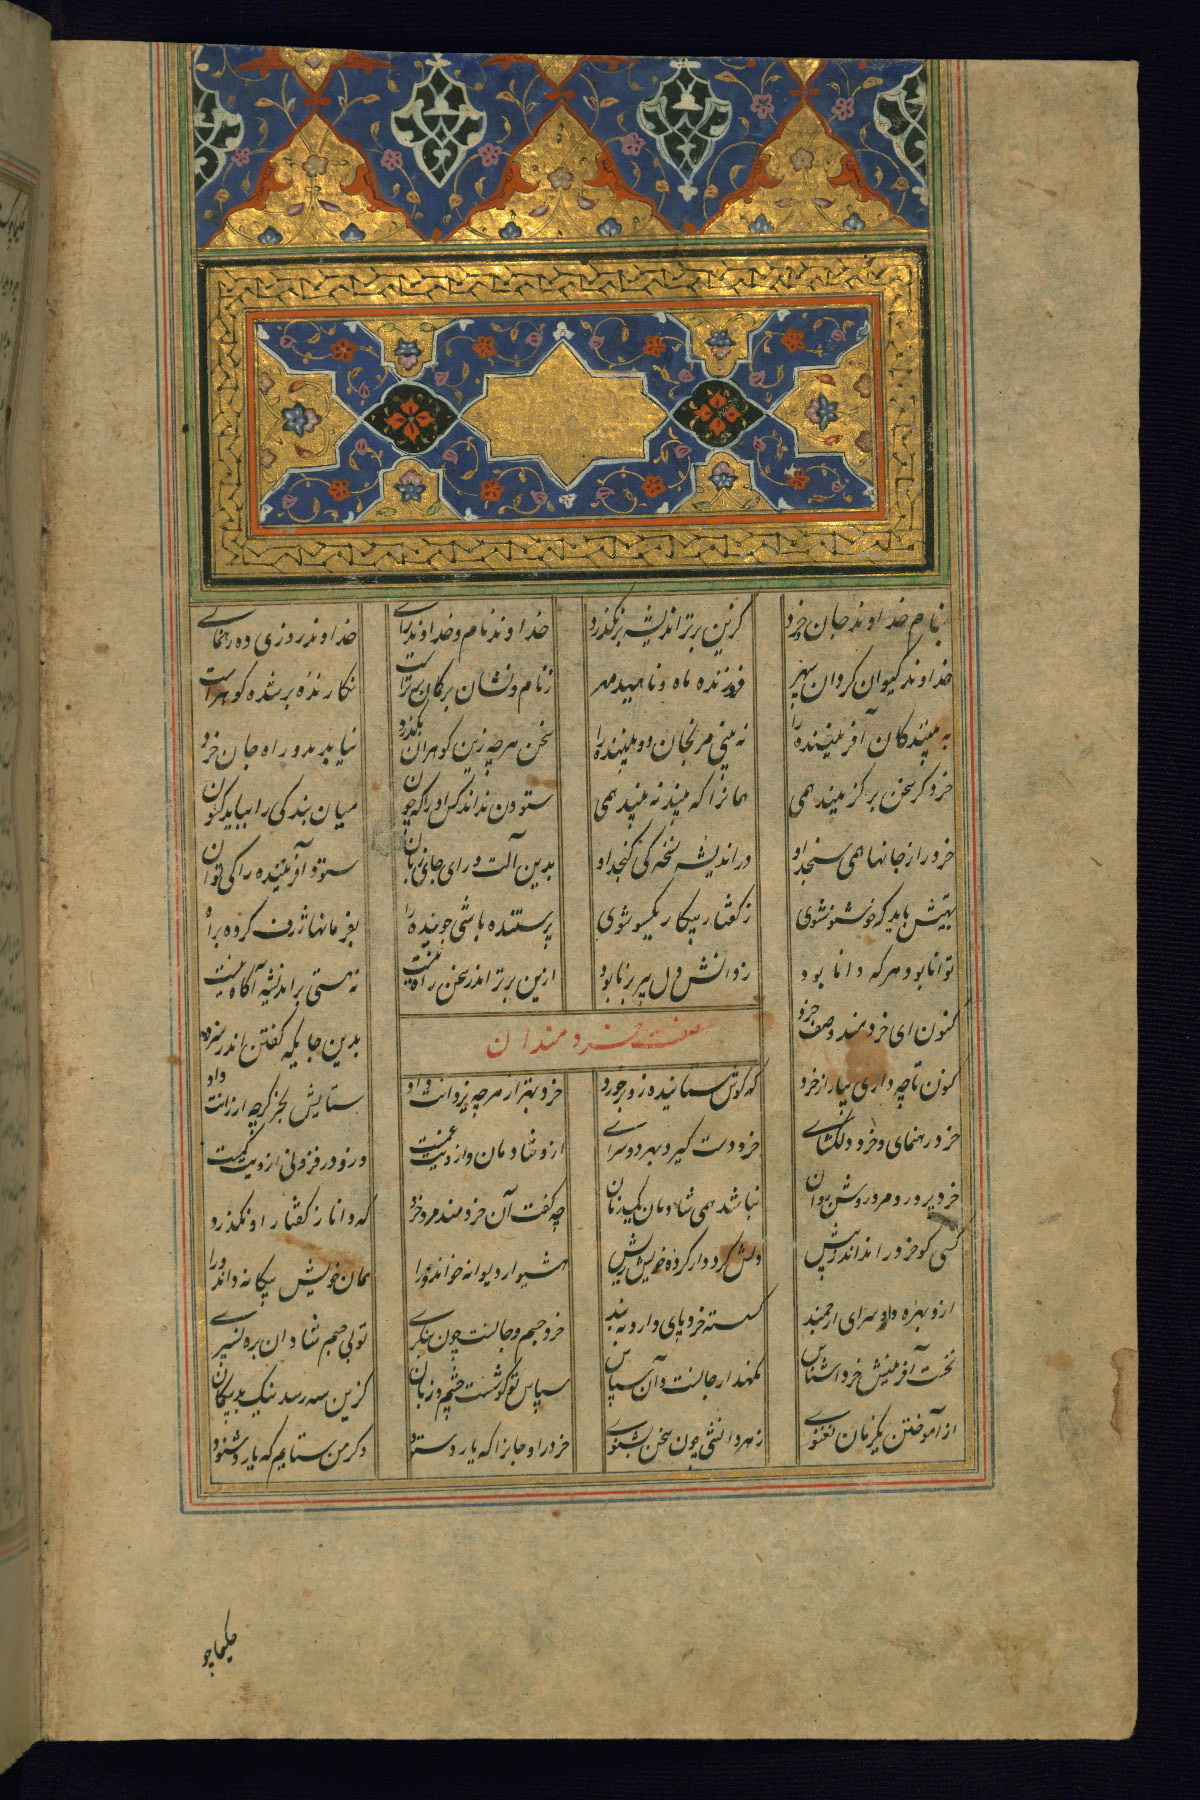 بنام خداوند جان و خرد کزین برتر اندیشه برنگذرد خداوند نام و خداوند رای خداوند روزی ده رهنمای
خداوند کیوان گردان سپهر فروزنده ماه و ناهید مهر ز نام و نشان برگمان برترست نگارنده برشده گوهرست
به بینندگان آفریننده را نه بینی مرنجان دو بیننده را سخن هر چه زین گوهران بگذرد نیابد بدو راه جان خرد
خرد گر سخن برگزیند همی همانرا که بیند نه بیند همی ستودن نداند کس او را که چون میان بندگی را بباید کنون
خرد را ز جانها همی سنجد او در اندیشه سخته کی گنجد او بدین آلت و رای جان زبان ستود آفریننده را کی توان
باید که خوشنو شوی ز گفتار پیکار یکسو شوی پرستنده باشی جوینده راه بفرمانها ژرف کرده
توانا بود هر که دانا بود ز دانش دل پیر برنا بود ازین برتر اندر سخن راه نیست به هستی بر اندیشه آگاه نیست
کنون ای خردمند وصف خرد بدین جایگه گفتن اندر خورد
صفت خردمندان
کنون تا چه داری بیار از خرد که گوش ستاننده زو برخورد خرد بهتر از هر چه یزدانت داد ستایش
خرد رهنمای و خرد دلگشای خرد دست گیرد بهر دو سرای ازو شادمان و ازویت غمیست وزو در فزونی ازویت کمیست
خرد و مرد روشن روان نباشد همی شادمان یکزمان چه گفت آن خردمند مرد خرد که دانا ز گفتار او نگذرد
کسی کو خرد را نداند ز پیش دلش گردد از کرده خویش ریش هشیوار دیوانه خواند ورا همان خویش بیگانه داند ورا
ازو بهره دو سرای ارجمند گسسته خرد پای دارد به بند خرد چشم و جانست چون بنگری تو بی چشم شادان بره نسپری
نخست آفرینش خرد را شناس نگهدار جانست و آن سپاس سپاس تو گوشست چشم و زبان کزین سه رسد نیک و بد بیگمان
از آموختن یکزمان نغنوی ز هر دانشی چون سخن بشنوی خرد را و جانرا که یارد ستود وگر من ستایم که یارد شنود
حکیما چو